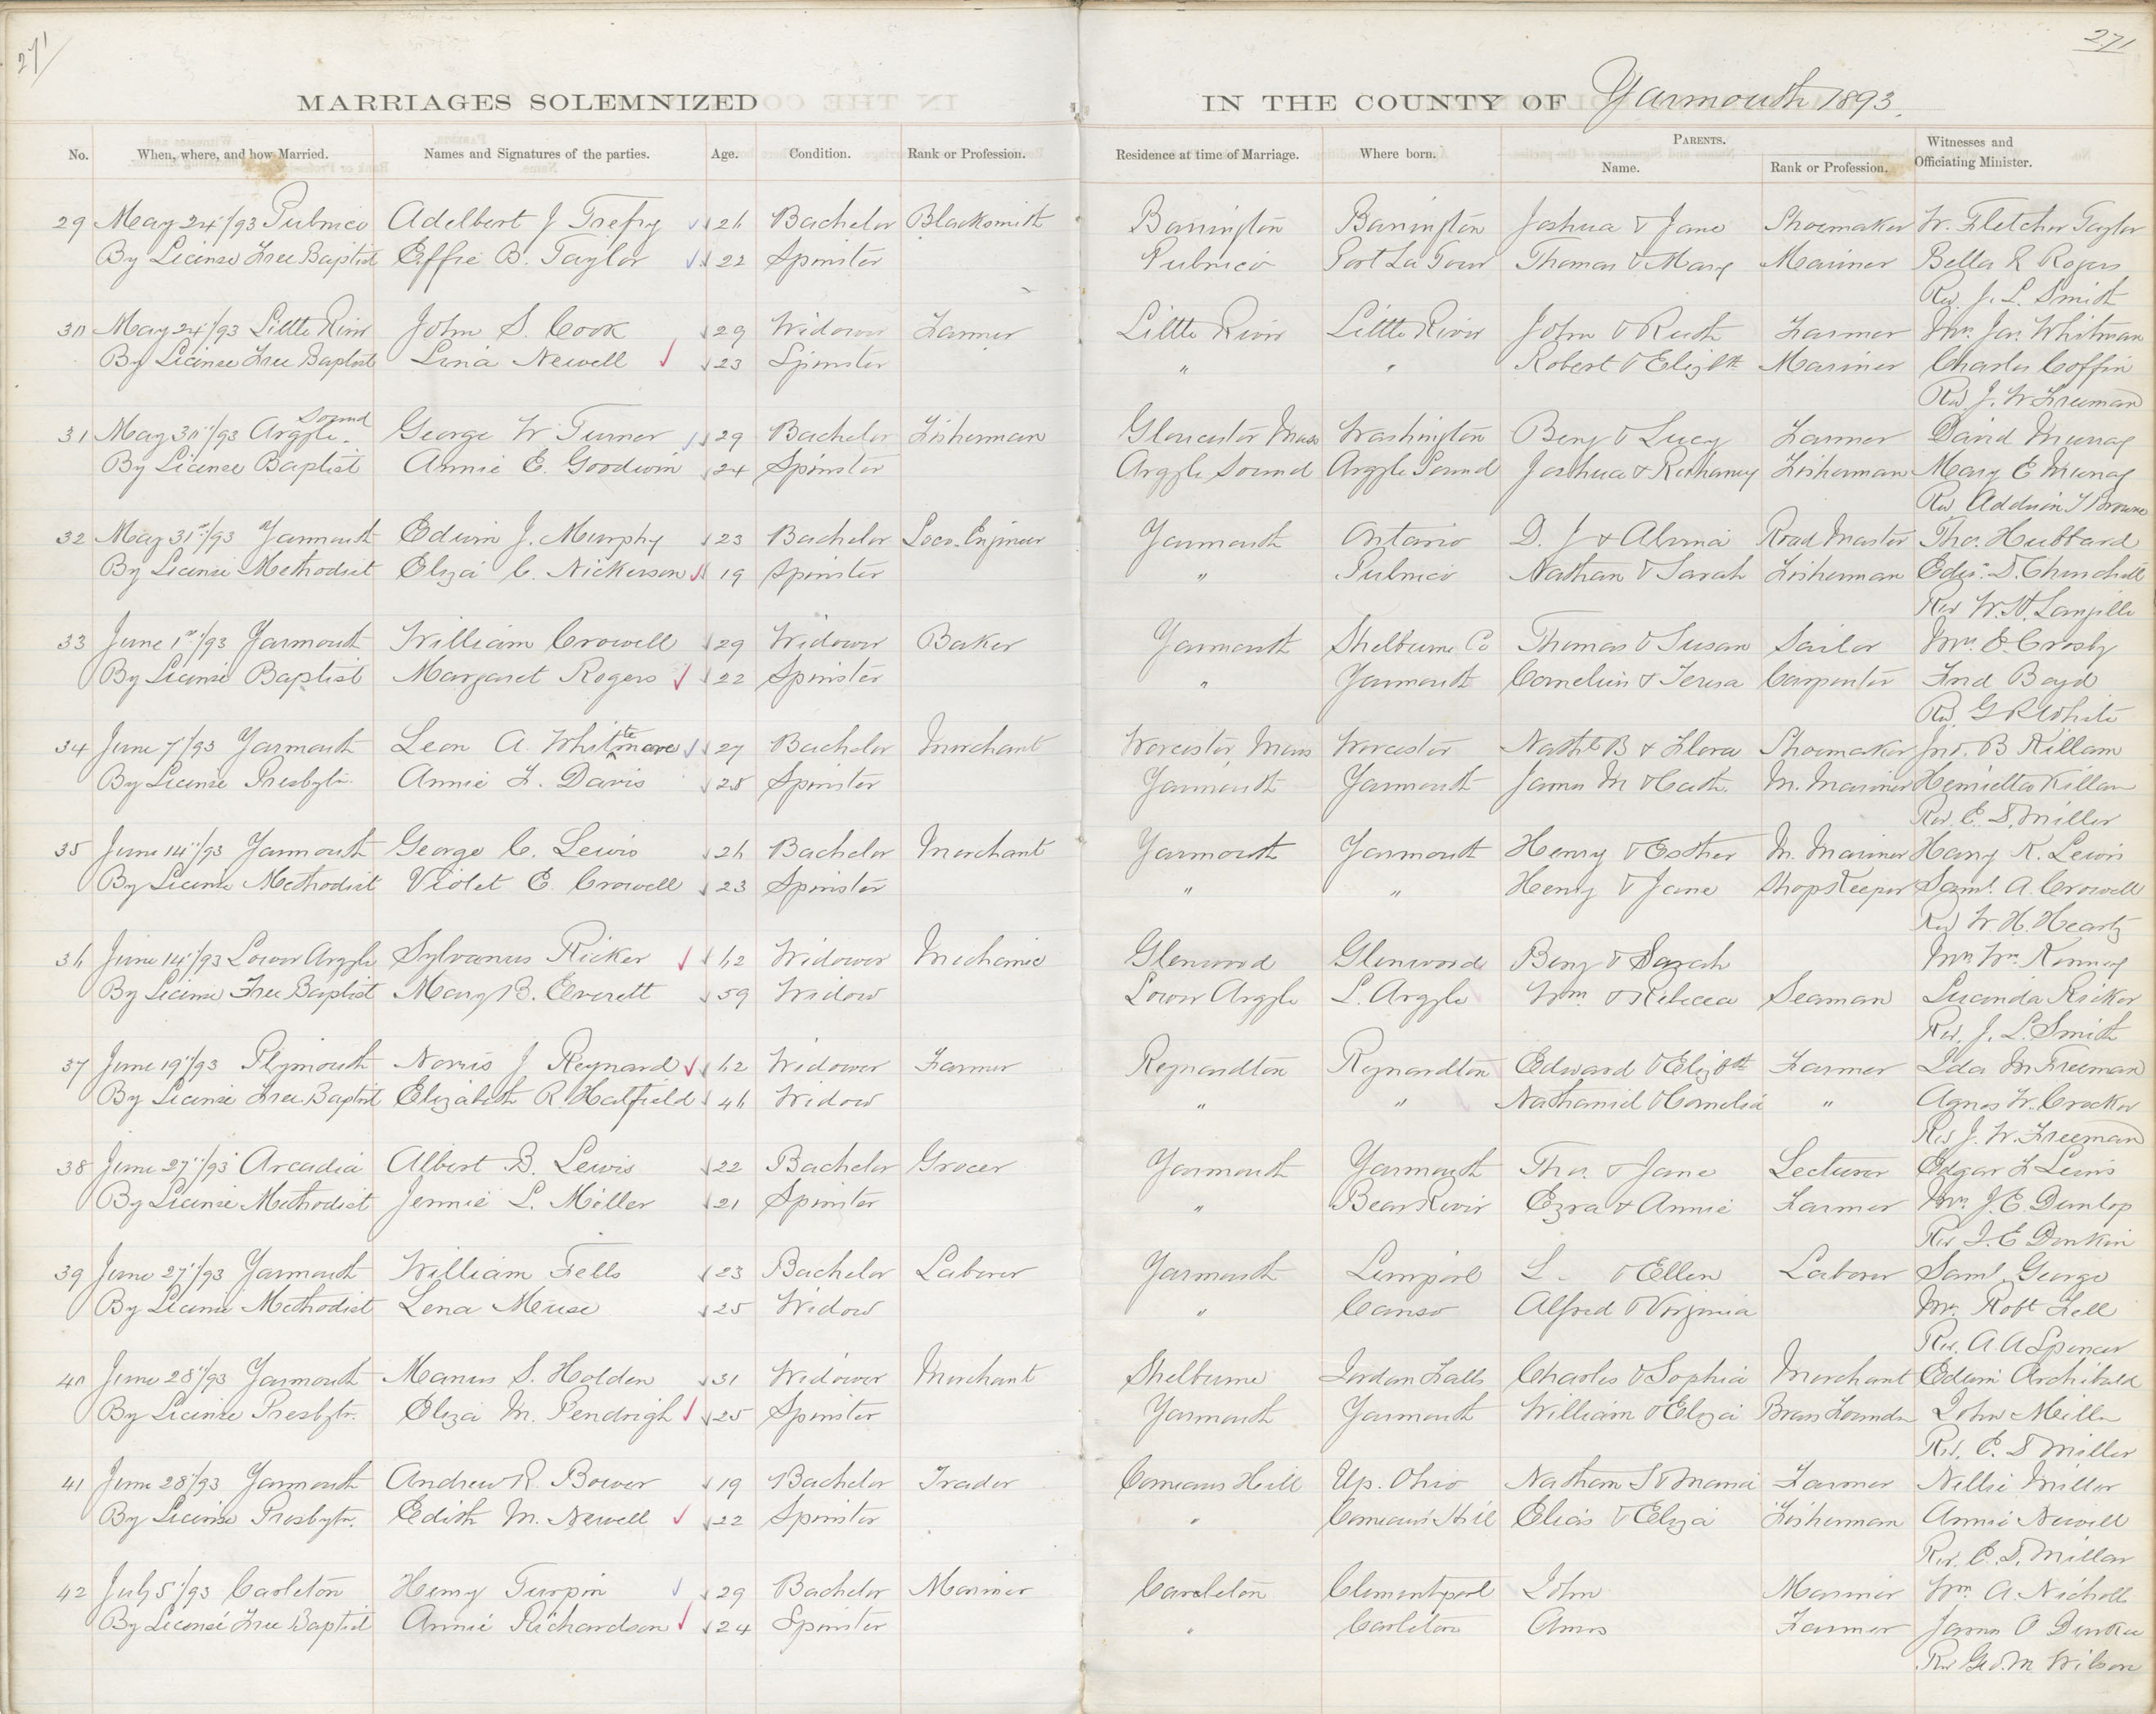 271
271
MARRIAGES SOLEMNIZED IN THE COUNTY OF Yarmouth 1893.
No. When, where, and how Married. Names and Signatures of the parties. Age. Condition. Rank or Profession. Residence at time of Marriage. Where born. PARENTS. Name. Rank or Profession. Witnesses and Officiating Minister.
29 May 24"/93 Pubnico Adelbert J Trefry 26 Bachelor Blacksmith Barrington Barrington Joshua & Jane Shoemaker W. Fletcher Taylor
By License Free Baptist Effie B. Taylor 22 Spinster Pubnico Port La Tour Thomas & Mary Mariner Bella R Rogers
Rev. J. L. Smith
30 May 24"/93 Little River John S. Cook 29 Widower Farmer Little River Little River John & Ruth Farmer Mrs. Jas. Whitman
By License Free Baptist Lina Newell 23 Spinster " " Robert & Elizbth Mariner Charles Coffin
Rev J. W. Freeman
31 May 30"/93 Argyle Sound George W Turner 29 Bachelor Fisherman Gloucester Mass Washington Benj & Lucy Farmer David Murray
By License Baptist Annie E. Goodwin 24 Spinster Argyle Sound Argyle Sound Joshua & Fisherman Mary E Murray
Rev Addison F Browne
32 May 31st/93 Yarmouth Edwin J. Murphy 23 Bachelor Loco. Engineer Yarmouth Ontario D. J & Almina Road Master Tho. Hubbard
By License Methodist Eliza C. Nickerson 19 Spinster " Pubnico Nathan & Sarah Fisherman Edgr. D. Churchill
Rev W. H. Langille
33 June 1st/93 Yarmouth William Crowell 29 Widower Baker Yarmouth Shelburne Co Thomas & Susan Sailor Mrs. E. Crosby
By License Baptist Margaret Rogers 22 Spinster " Yarmouth Cornelius & Teresa Carpenter Fred Boyd
Rev. G R White
34 June 7"/93 Yarmouth Leon A. Whittemore 27 Bachelor Merchant Worcester, Mass Worcester Nathl B & Flora Shoemaker Jno. B Killam
By License Presbytn. Annie F. Davis 28 Spinster Yarmouth Yarmouth James M & Cath. M. Mariner Henrietta Killam
Rev. E. D. Miller
35 June 14"/93 Yarmouth George C. Lewis 26 Bachelor Merchant Yarmouth Yarmouth Henry & Esther M. Mariner Harry K. Lewis
By License Methodist Violet E. Crowell 23 Spinster " " Henry & Jane ShopKeeper Saml. A. Crowell
Rev W. H. Heartz
36 June 14"/93 Lower Argyle Sylvanus Ricker 62 Widower Mechanic Glenwood Glenwood Benj & Sarah Mrs Wm. Kenney
By License Free Baptist Mary B. Everett 59 Widow Lower Argyle L. Argyle Wm. & Rebecca Seaman Lucinda Ricker
Rev. J. L. Smith
37 June 19"/93 Plymouth Norris J Reynard 62 Widower Farmer Reynardton Reynardton Edward & Elizbth Farmer Ida M Freeman
By License Free Baptist Elizabeth R. Hatfield 46 Widow " " Nathaniel & Cornelia " Agnes W. Crocker
Rev J. W. Freeman
38 June 27"/93 Arcadia Albert B. Lewis 22 Bachelor Grocer Yarmouth Yarmouth Tho. & Jane Lecturer Edgar F Lewis
By License Methodist Jennie L. Miller 21 Spinster " Bear River Ezra & Annie Farmer Mrs. J. E. Dunlop
Rev J. E Donkin
39 June 27"/93 Yarmouth William Fells 23 Bachelor Laborer Yarmouth Liverpool L. & Ellen Laborer Saml. George
By License Methodist Lena Meuse 25 Widow " Canso Alfred & Virginia Mrs. Robt Fell
Rev. A. A Spencer
40 June 28"/93 Yarmouth Manus S. Holden 31 Widower Merchant Shelburne Jordan Falls Charles & Sophia Merchant Edwin Archibald
By License Presbytn. Eliza M. Pendrigh 25 Spinster Yarmouth Yarmouth William & Eliza Brass Founder John Miller
Rev. E. D Miller
41 June 28"/93 Yarmouth Andrew R. Bower 19 Bachelor Trader Comeaus Hill Up. Ohio Nathan S & Maria Farmer Nellie Miller
By License Presbytn. Edith M. Newell 22 Spinster " Comeau's Hill Elias & Eliza Fisherman Annie Newell
Rev. E. D. Millar
42 July 5"/93 Carleton Henry Turpin 29 Bachelor Mariner Carleton Clementsport John Mariner Wm. A. Nicholl
By License Free Baptist Annie Richardson 24 Spinster " Carleton Amos Farmer James O
Rev Geo. M. Wilson